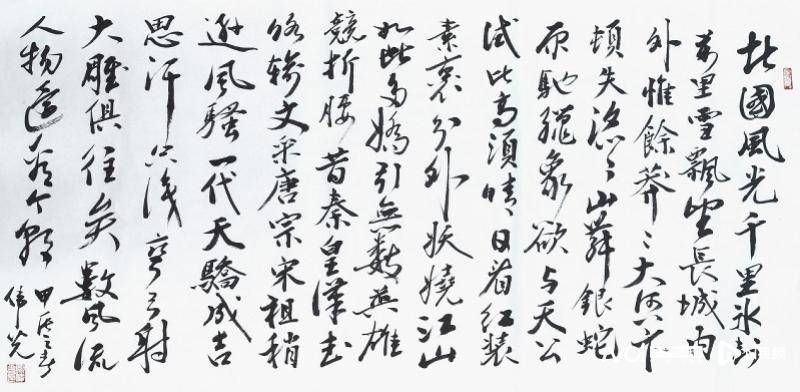 北國風光千里冰封
萬里雪飄望長城内
外惟餘莽〻大河上下
頓失滔〻山舞銀蛇
原馳蠟象欲与天公
試比高須晴日看紅装
素裹分外妖嬈江山
如此多嬌引無數英雄
競折腰昔秦皇漢武
略輸文采唐宗宋祖稍
遜風騷一代天驕成吉
思汗只識彎弓射
大雕俱往矣數風流
人物還看今朝
甲辰之春
伟光